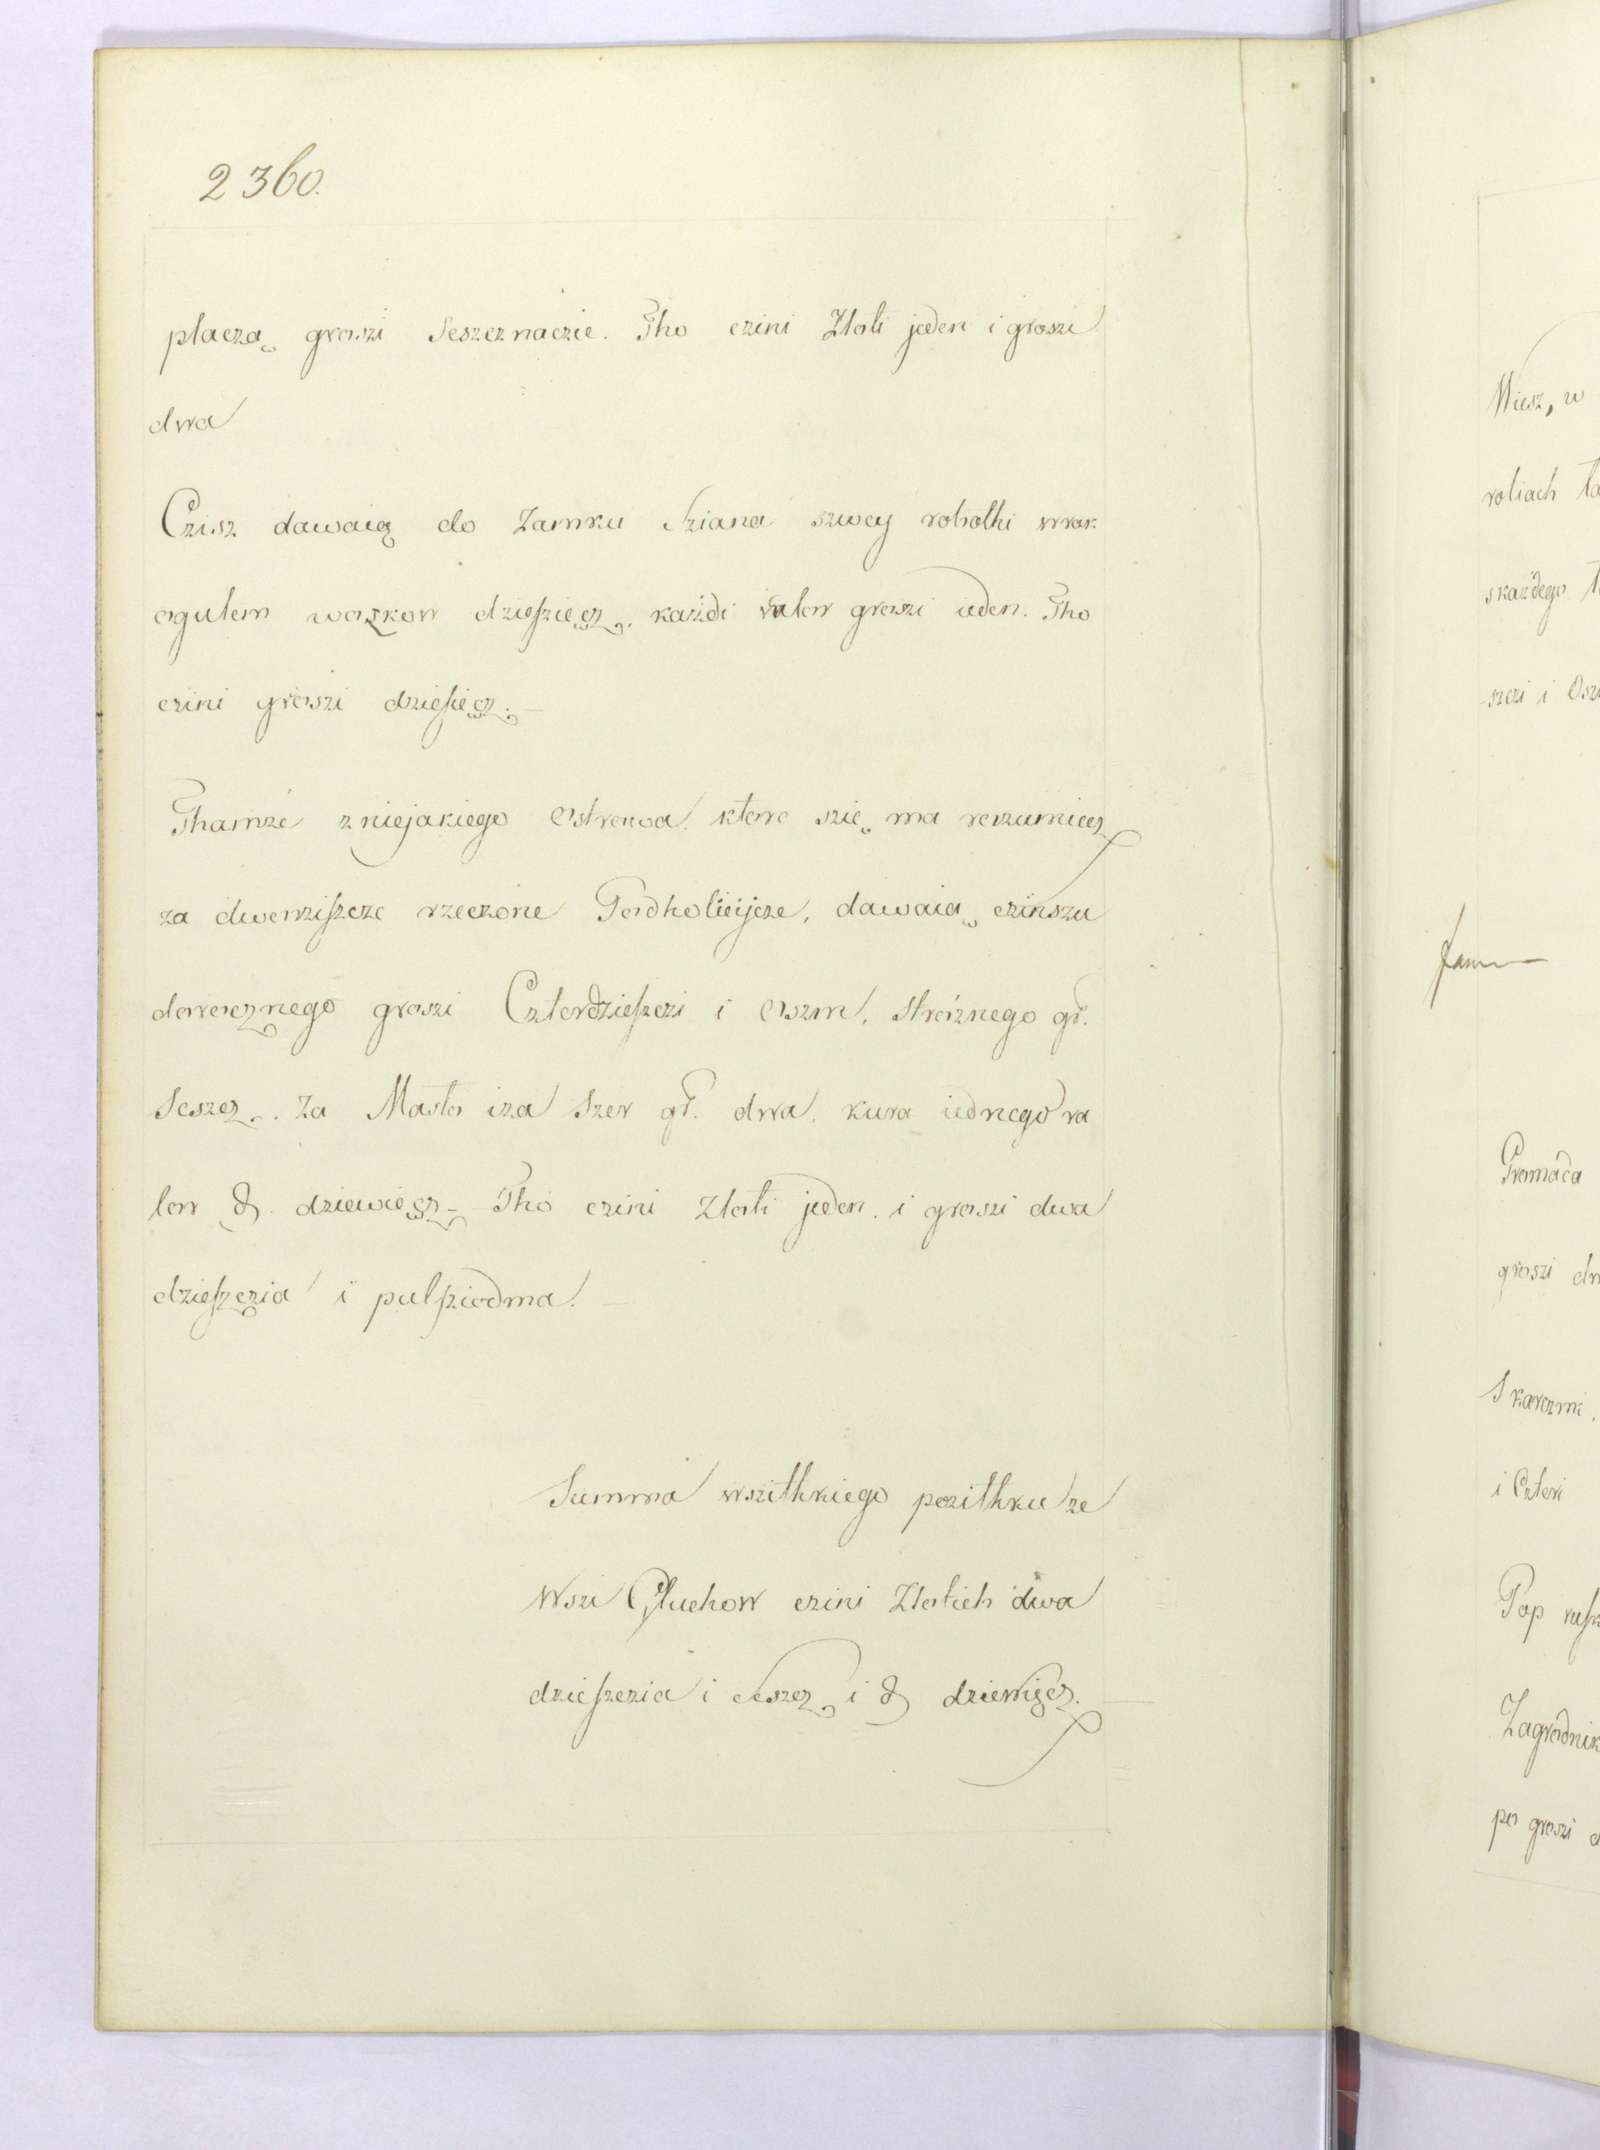 2360.
płaczą groszi Seszcznaczie. Tho czini Złoti jeden i groszi
dwa
Czisz dawaią do Zamku Sziana szwey robothi wrok
ogulem woszkow dzieszięcz, każdi valor groszi ieden. Tho
czini groszi dziesięcz.
Thamże z niejakiego Ostrowa, ktore szię ma rozumiecz
za dworziszcze rzeczone, dawaią czinszu
dorocznego groszi Czterdzieszczi i Oszm, stróżnego gr.
Seszcz. Za Masło iza Szer gr. dwa, kura iednego va
lor d. dziewięcz Tho czini Złoti jeden, i groszi dwa
dzieszczia i pulsziodma.
Summa wszitkiego pozithku ze
Wszi Głuchow czini Złotich dwa
dzieszczia i Seszcz i d dziewięcz.
Wiesz, w
roliach
skażdego
szczi i
Gromada
groszi
Skarczmi,
i Czteri
Pop
po groszi